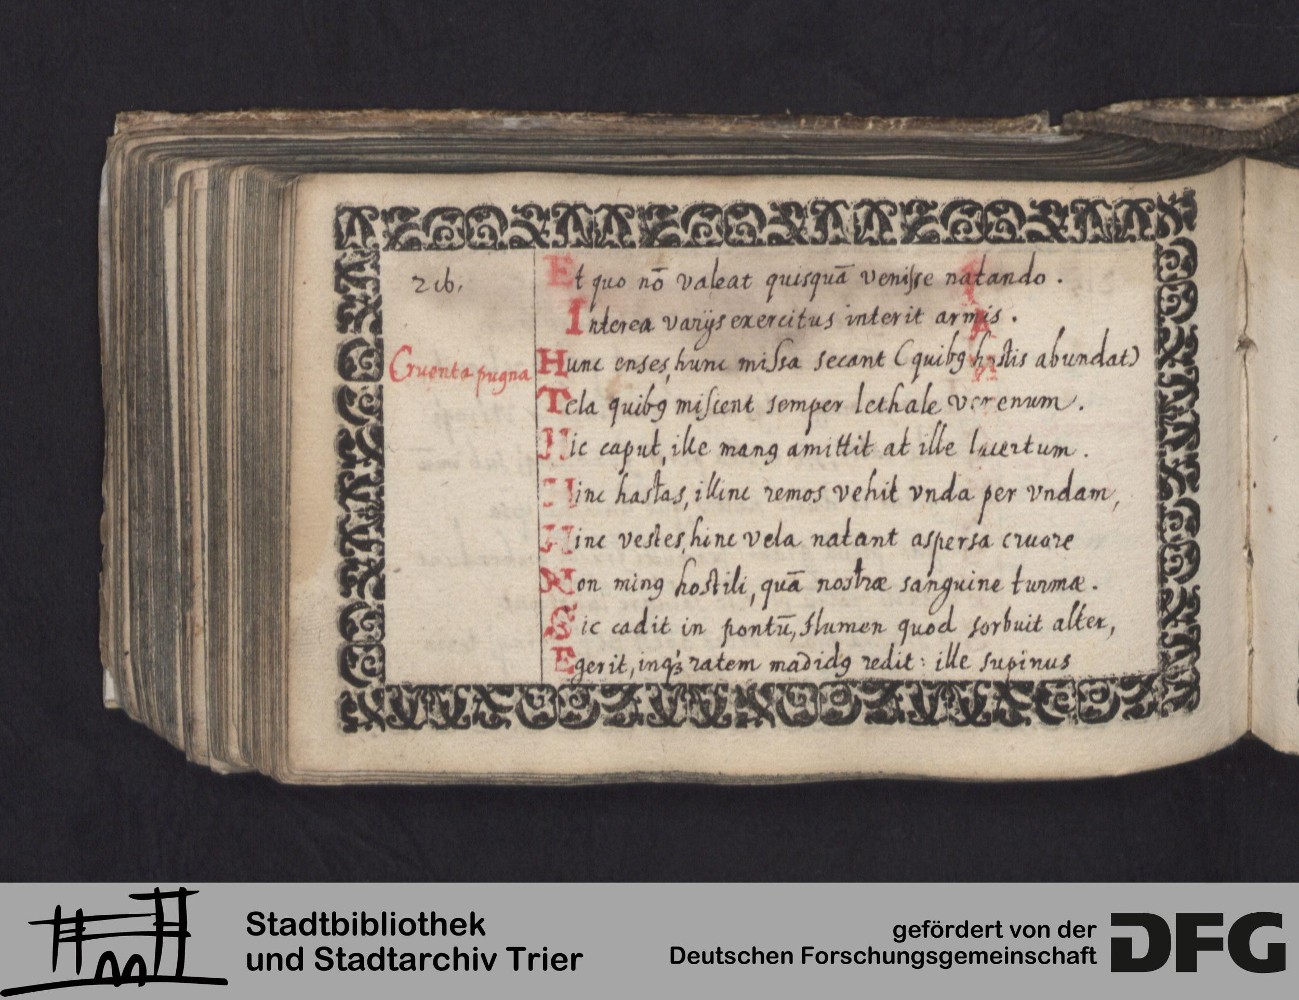 216.
Cruenta pugna
Et quo nō valeat quisquā venisse natando.
Interea varijs exercitus interit armis.
Hunc enses, hunc missa secant (quibꝰ hostis abundat)
Tela quibꝰ miscent semper lethale venenum.
Hic caput, ille manꝰ amittit at ille lacertum.
Hinc hastas, illinc remos vehit vnda per vndam,
Hinc vestes, hinc vela natant aspersa cruore
Non minꝰ hostili, quā nostræ sanguine turmæ.
Sic cadit in pontū, flumen quod sorbuit alter,
Egerit, inqꝫ ratem madidꝰ redit: ille supinus
Stadtbibliothek
und Stadtarchiv Trier
gefördert von der
Deutschen Forschungsgemeinschaft
DFG